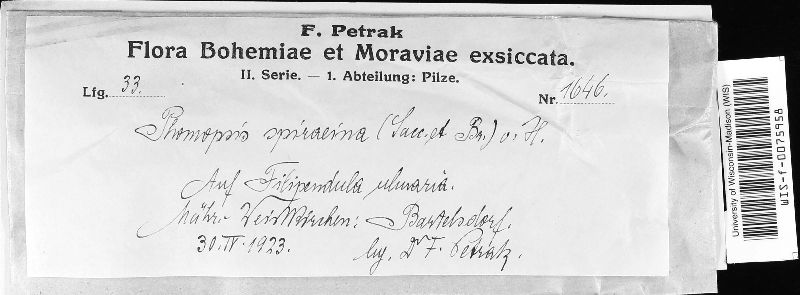 F. Petrak
Flora Bohemiae et Moraviae exsiccata.
II. Serie. — 1. Abteilung: Pilze.
Lfg. 33.
Nr. 1646.
Phomopsis spiraeina (Sacc. et Br.) v. H.
Auf Filipendula ulmaria.
Mähr. Weisskirchen: Bartelsdorf.
30. IV. 1923. lg. Dr F. Petrak.
University of Wisconsin-Madison (WIS)
WIS-f-0075958